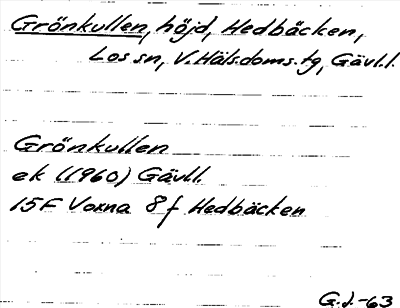 Grönkullen, höjd, Hedbäcken,
Los sn, V.Häls.doms.tg, Gävl.l.
Grönkullen
ek (1960) Gävll.
15F Voxna 8f Hedbäcken
G.J.-63